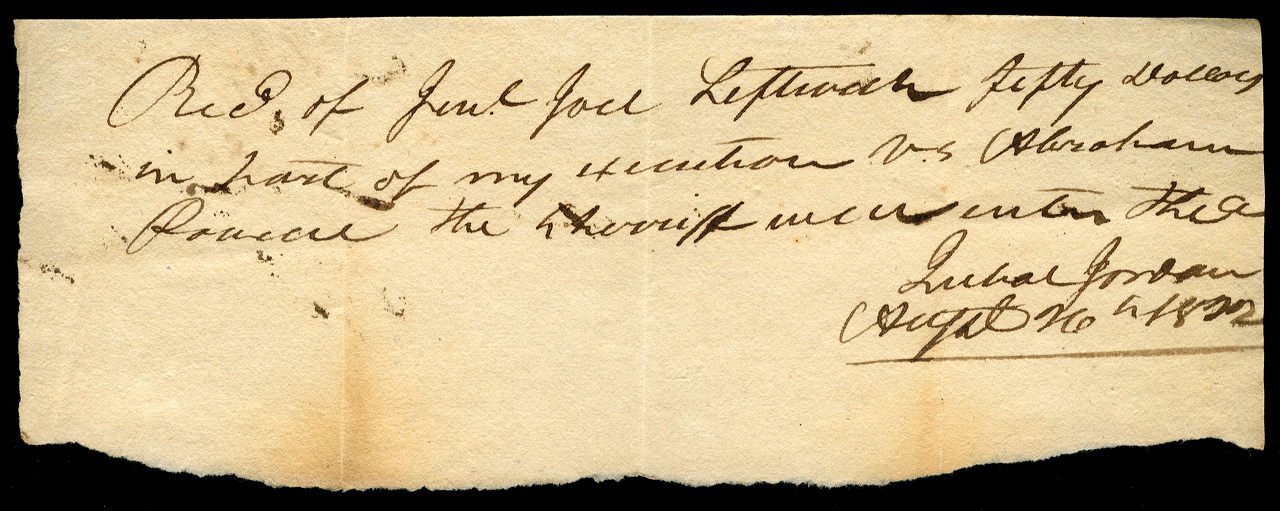 Recd. of Jenl. Joel Leftwich fifty Dollars
in part of my execution vs Abraham
the Sherriff will enter the
Jubal Jordan
Augst 26th 1822